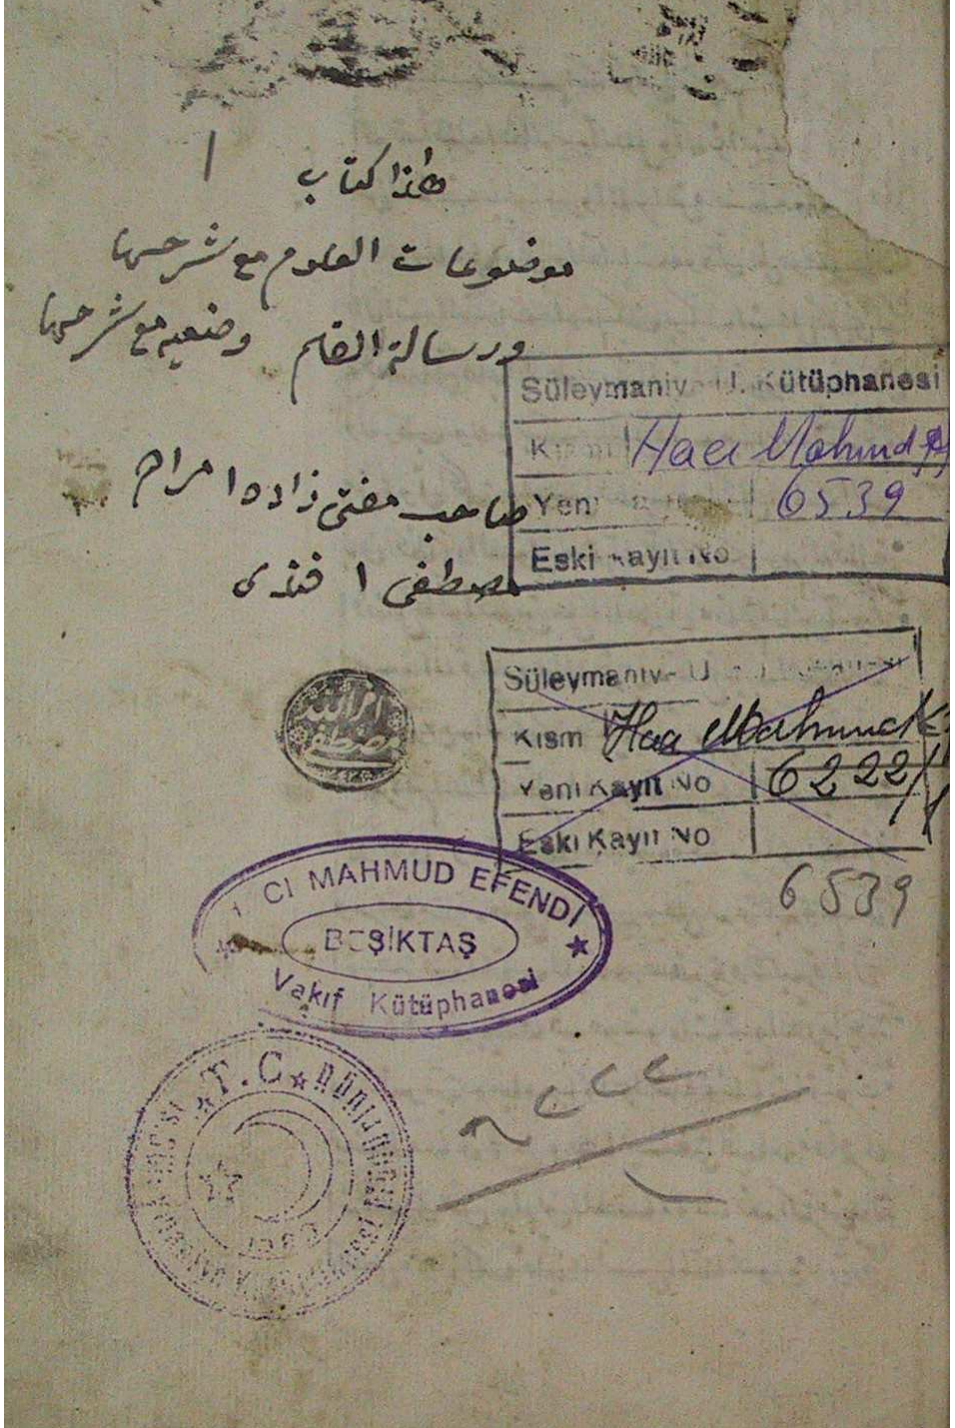 ١
هذا كتاب
موضوعات العلوم مع شرحها
ورسالة القلم وضعيه مع شرحها
صاحب مفتى زاده
مصطفى افندى
Süleymaniye U. Kütüphanesi
Kısmı Hacı Mahmud
Yeni Kayıt No 6539
Eski Kayıt No
Süleymaniye U.
Kısmı Hacı Mahmud
Yeni Kayıt No 6222/1
Eski Kayıt No
6539
CI MAHMUD EFENDİ
BEŞİKTAŞ
Vakıf Kütüphanesi
T.C.
٦٢٢٢